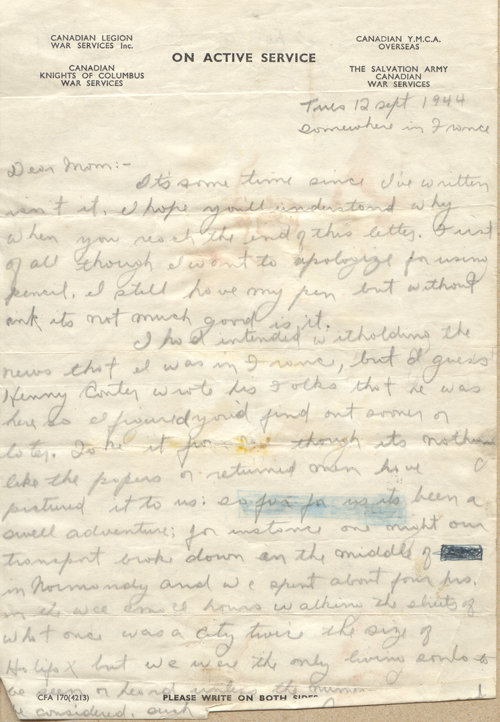 CANADIAN LEGION
WAR SERVICES Inc.
CANADIAN
KNIGHTS OF COLUMBUS
WAR SERVICES
ON ACTIVE SERVICE
CANADIAN Y.M.C.A.
OVERSEAS
THE SALVATION ARMY
CANADIAN
WAR SERVICES
Tues 12 sept 1944
somewhere in France
Dear Mom:-
It's some time since I've written
isn't it, I hope you'll understand why
when you reach the end of this letter. First
of all though I want to apologize for using
pencil, I still have my pen but without
ink its not much good is it.
I had intended witholding the
news that I was in France, but I guess
Henny wrote his Folks that he was
here so I figured you'd find out sooner or
later. Take it from me though its nothing
like the papers or returned men have
pictured it to us: so far for us its been a
swell adventure; for instance one night our
transport broke down in the middle of
in Normandy and we spent about four hrs.
in the wee small hours walking the streets of
what once was a city twice the size of
Halifax but we were the only living souls to
be seen or heard unless the
be considered, such
CFA 170(4213)
PLEASE WRITE ON BOTH SIDES